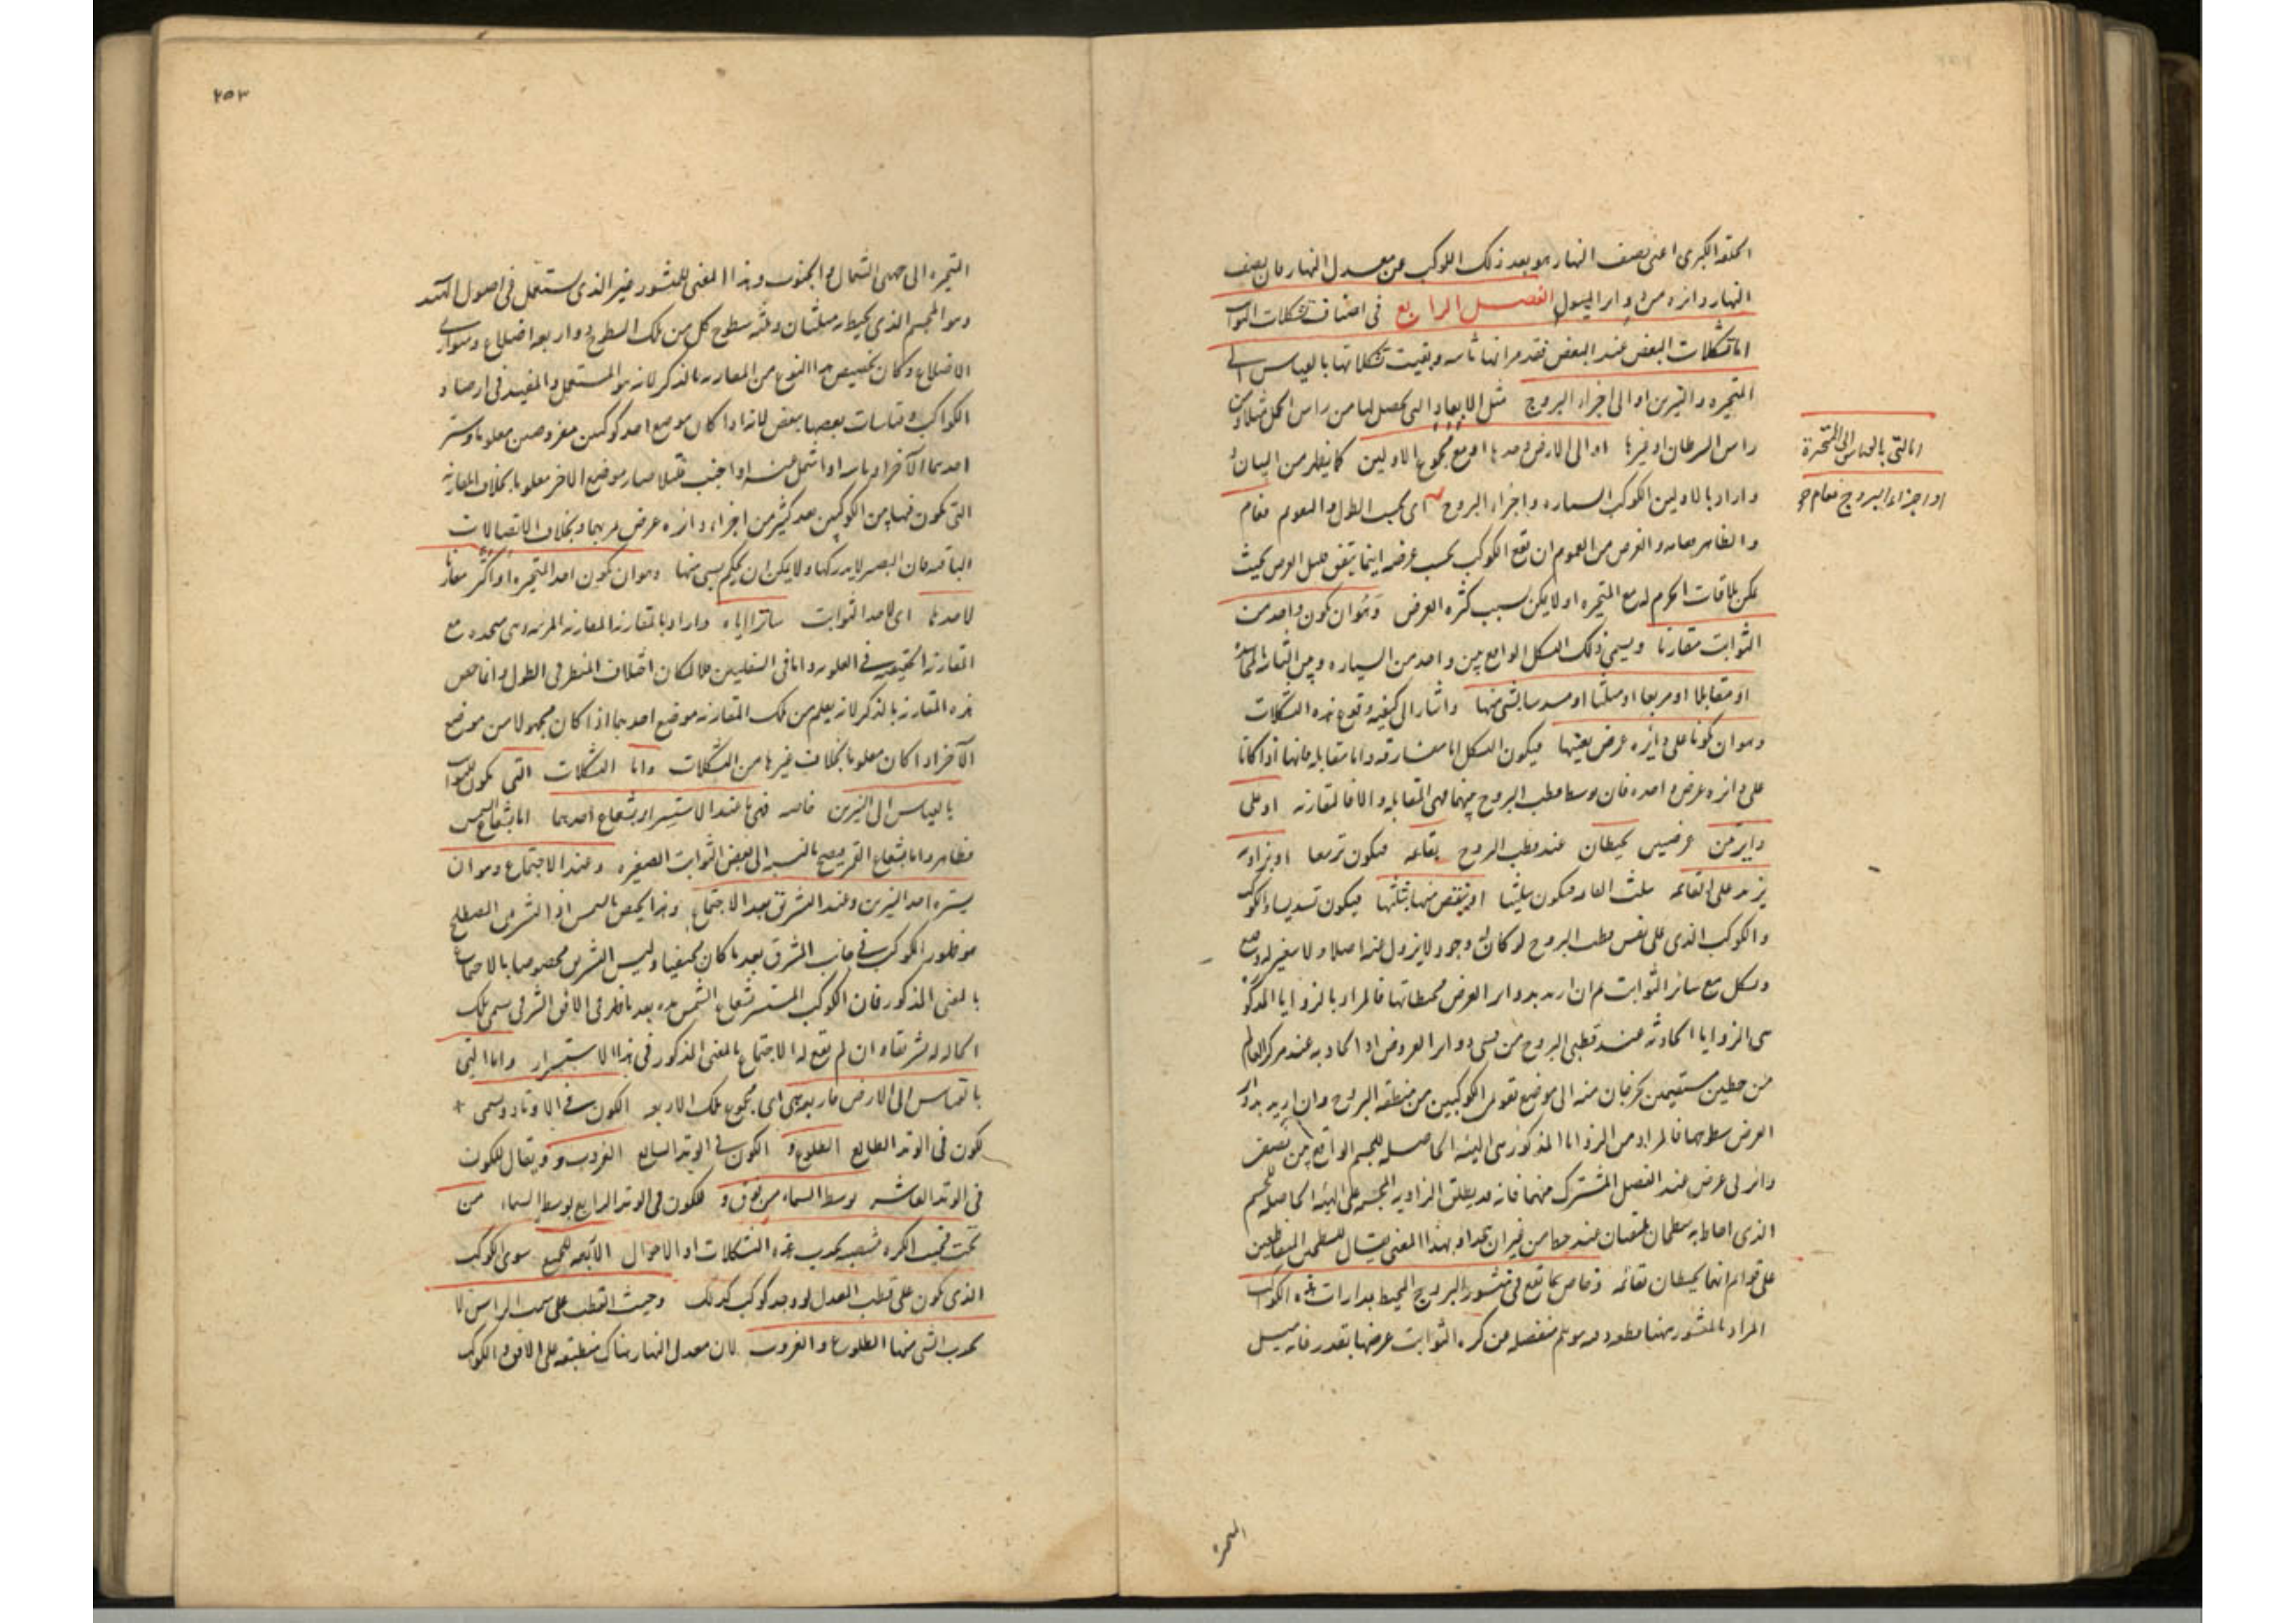 الحلقة الكبرى اعنى نصف النهار هو بعد ذلك الكوكب عن معدل النهار فان نصف
النهار دائره من دواير الميول الفصل الرابع فى اصناف تشكلات الثوابت
اما تشكلات البعض عند البعض فقد مر انها ثابته وبقيت تشكلاتها بالقياس الى
المتحيره والنيرين او الى اجزاء البروج مثل الابعاد التى تحصل لها من راس الحمل مثلا ومن
راس السرطان او غيرها او الى الارض وحدها او مع مجموع الاولين كما يظهر من البيان
واراد بالاولين الكوكب السياره واجزاء البروج اى بحسب الطول والتقويم فعام
والظاهر ان العرض من العموم ان تقع الكوكب بحسب عرضه اينما يتفق قليل العرض بحيث
يمكن ملاقات الجرم له مع المتحيره او لا يمكن بسبب كثره العرض وهو ان يكون واحد من
الثوابت مقارنا ويسمى ذلك الشكل الواقع بين واحد من السياره وبين الثابته
او مقابلا او مربعا او مثلثا او مسدسا لشى منها واشار الى كيفيه وقوع هذه التشكلات
وهو ان يكونا على دائره عرض بعينها فيكون الشكل اما مقارنه واما مقابله فانها اذا كانا
على دائره عرض واحده فان وسط قطب البروج بينهما فهى المقابله والا فالمقارنه او على
دايرتين عرضيتين يحيطان عند قطب البروج بقائمه فيكون تربيعا او بزاويه
يزيد على القائمه بثلث القائمه فيكون تثليثا او ينقص منها بثلثها فيكون تسديسا والكوكب
والكوكب الذى على نفس قطب البروج لو كان له وجود لا يزول عنه اصلا ولا يتغير له وضع
وشكل مع سائر الثوابت ثم ان اريد بدواير العرض محيطاتها فالمراد بالزوايا المذكوره
هى الزوايا الحادثه عند قطبى البروج من قسى دواير العروض او الحادثه عند مركز العالم
من خطين مستقيمين يخرجان منه الى موضع تقويم الكوكبين من منطقه البروج وان اريد بدواير
العرض سطوحها فالمراد من الزوايا المذكوره هى الهيئه الحاصله للجسم الواقع بين نصف
دائرتى عرض عند الفصل المشترك منهما فانه قد يطلق الزاويه المجسمه على الهيئه الحاصله للجسم
الذى احاط به سطحان ملتقيان عند خط من غير ان يتحدا وبهذا المعنى يقال للسطحين المتقاطعين
على قوائم انهما يحيطان بقائمه وخاص بما تقع فى منشور البروج المحيط بمدارات هذه الكواكب
المراد بالمنشور هنا قطعه موهومه منفصله من كره الثوابت عرضها بقدر غايه ميل
اما التى بالقياس الى المتحيرة
او اجزاء البروج فعام
المتحيره
٢٥٣
المتحيره الى جهتى الشمال والجنوب وهذا المعنى للمنشور غير الذى يستعمل فى اصول الهندسه
وهو المجسم الذى يحيط به مثلثان وثلثه سطوح كل من تلك السطوح ذو اربعه اضلاع ومتوازى
الاضلاع وكان تخصيص هذا النوع من المقارنه بالذكر لانه هو المستعمل والمفيد فى ارصاد
الكواكب وقياسات بعضها ببعض لانه اذا كان موضع احد كوكبين مفروضين معلوما وستر
احدهما الآخر او ماسه او اشمل عنه او اجنب مثلا صار موضع الاخر معلوما بخلاف المقارنه
التى تكون فيها بين الكوكبين بعد كثير من اجزاء دائره عرض مر بهما وبخلاف الاتصالات
الباقيه فان البصر لا يدركها ولا يمكن ان يحكم بشى منها وهو ان يكون احد المتحيره او اكثر مقارنا
لاحدها اى لاحد الثوابت ساترا اياه واراد بالمقارنه المقارنه المرئيه وهى متحده مع
المقارنه الحقيقيه فى العلويه واما فى السفليين فلا لمكان اختلاف المنظر فى الطول وانما خص
هذه المقارنه بالذكر لانه يعلم من تلك المقارنه موضع احدهما اذا كان مجهولا من موضع
الآخر اذا كان معلوما بخلاف غيرها من التشكلات واما التشكلات التى تكون للثوابت
بالقياس الى النيرين خاصه فهى ما عند الاستسرار بشعاع احدهما اما بشعاع الشمس
فظاهر واما بشعاع القمر فيصح بالنسبه الى بعض الثوابت الصغيره وعند الاجتماع وهو ان
يستره احد النيرين وعند التشريق بعد الاجتماع وهذا يختص بالشمس اذ التشريق المصطلح
هو ظهور الكوكب فى جانب المشرق بعد ما كان مختفيا وليس التشريق مخصوصا بالاجتماع
بالمعنى المذكور فان الكوكب المستسر بشعاع الشمس بعد ما ظهر فى الافق الشرقى يسمى تلك
الحاله له تشريقا وان لم يقع له الاجتماع بالمعنى المذكور فى هذا الاستسرار واما التى
بالقياس الى الارض فاربعه هى اى مجموع تلك الاربعه الكون فى الاوتاد ويسمى
كون فى الوتد الطالع الطلوع و الكون فى الوتد السابع الغروب و ويقال للكون
فى الوتد العاشر بوسط السماء من فوق و للكون فى الوتد الرابع بوسط السماء من
تحت فيجب الكره منتصبه يحدث هذه التشكلات او الاحوال الاربعه للجميع سوى الكوكب
الذى يكون على قطب المعدل لو وجد كوكب كذلك وحيث القطب على سمت الراس لا
يحدث لشى منها الطلوع والغروب لان معدل النهار هناك منطبقه على الافق والكوكب